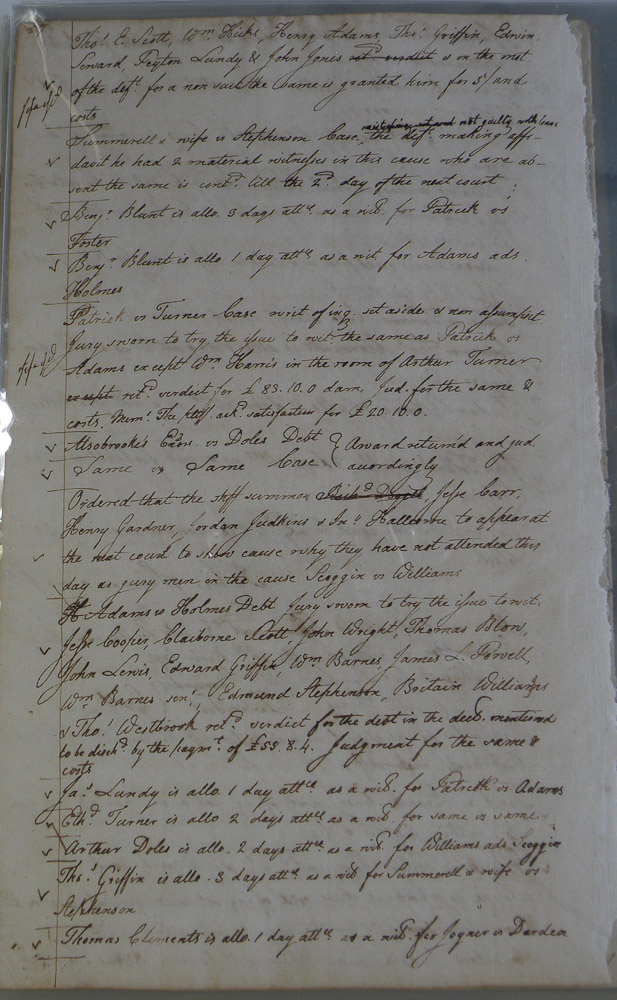 Thos. E. Scott, Wm Hicks, Henry Adams, Thos. Griffin, Edwin
Seward, Peyton Lundy & John Jones retd. verdict & on the mot
of the deft. for a non suit the same is granted him for 5/ and
costs
not guilty with leave
Summerell & wife vs Stephenson Case, the deft. making affi-
davit he had 2 material witnesses in this cause who are ab-
sent the same is contd. till the 2d. day of the next court
Benjn. Blunt is allo. 3 days attce. as a wit. for Patrick vs
Foster
Benjn. Blunt is allo. 1 day attce. as a wit for Adams ads.
Holmes
Patrick vs Turner Case writ of inq. set aside & non assumpsit
Jury sworn to try the issue to wit. the same as Patrick vs
Adams except Wm. Harris in the room of Arthur Turner
except retd. verdict for £83.10.0 dam. Jud. for the same &
costs. Memo. The plff. ack. satisfaction for £20.10.0.
Alsobrook's Exors. vs Doles Debt } Award return'd and jud
Same vs Same Case } accordingly
Ordered that the shff summon Jesse Carr,
Henry Gardner, Jordan Judkins & Jno. Hallcome to appear at
the next court to show cause why they have not attended this
day as jury men in the cause Scoggin vs Williams
H Adams vs Holmes Debt Jury sworn to try the issue to wit.
Jesse Cooper, Claiborne Scott, John Wright, Thomas Blow,
John Lewis, Edward Griffin, Wm Barnes, James L. Powell,
Wm. Barnes senr., Edmund Stephenson, Britain Williams
& Thos. Westbrook retd. verdict for the debt in the decl. mentioned
to be dischd. by the paymt. of £55.8.4. Judgment for the same &
costs
Jas. Lundy is allo. 1 day attce. as a wit. for Patrick vs Adams
Ethd. Turner is allo 2 days attce. as a wit. for same vs same
Arthur Doles is allo. 2 days attce. as a wit. for Williams ads Scoggin
Thos. Griffin is allo. 3 days attce. as a wit for Summerell & wife vs
Stephenson
Thomas Clements is allo. 1 day attce. as a wit. for Joyner vs Darden